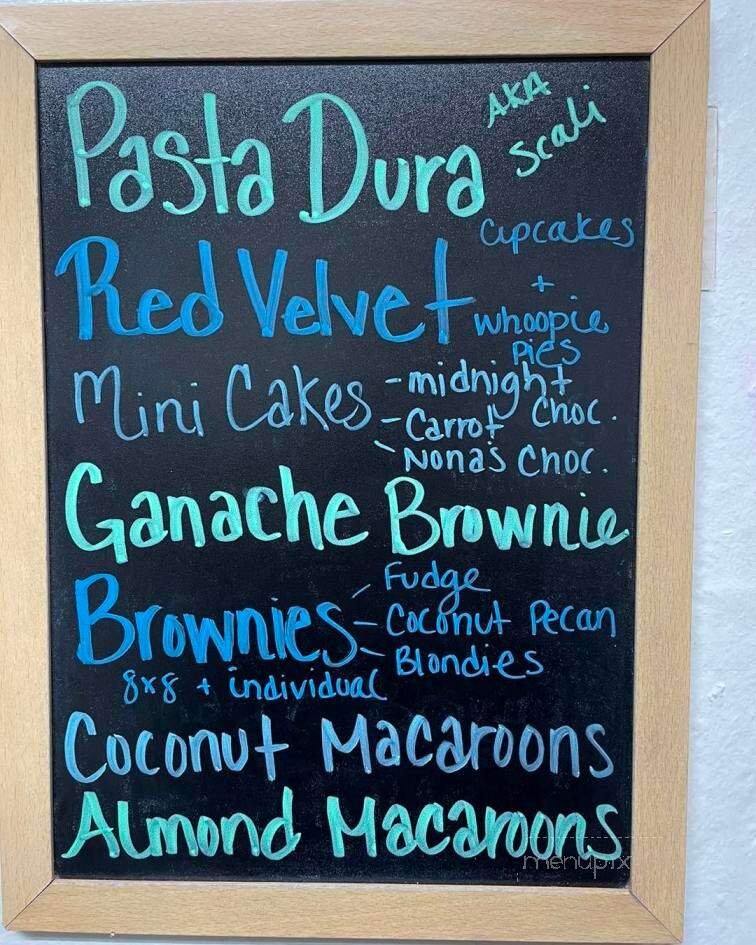 Pasta Dura AKA Scali
Red Velvet cupcakes
+
whoopie
pies
Mini Cakes - midnight Choc.
- Carrot
- Nona's Choc.
Ganache Brownie
Brownies - Fudge
- Coconut Pecan
- Blondies
8x8 + individual
Coconut Macaroons
Almond Macaroons
menupix